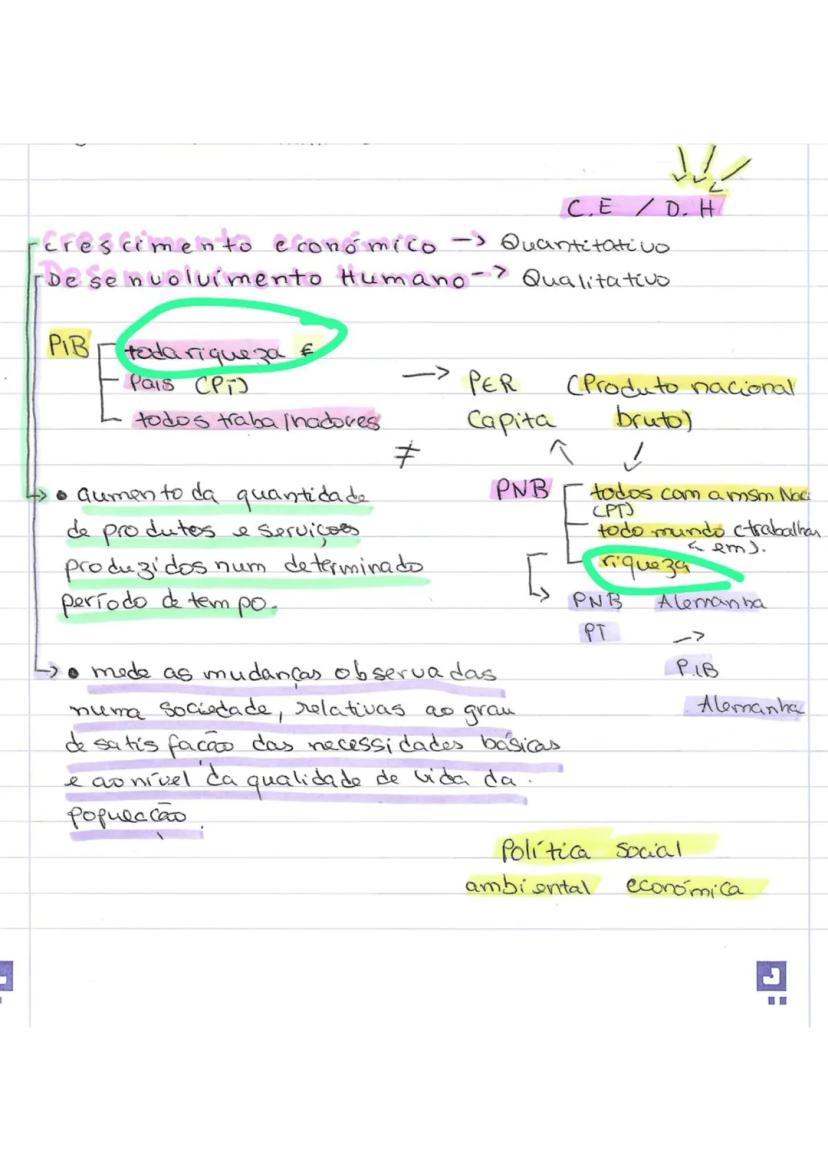 C.E / D.H
Crescimento económico -> Quantitativo
Desenvolvimento Humano -> Qualitativo
PIB
toda riqueza €
País (PT)
todos trabalhadores
-> PER (Produto nacional
Capita bruto)
≠
PNB
todos com a msm Nac
(PT)
todo mundo (trabalham
em).
riqueza
PNB Alemanha
PT ->
PIB
Alemanha
• aumento da quantidade
de produtos e serviços
produzidos num determinado
período de tempo.
• mede as mudanças observadas
numa sociedade, relativas ao grau
de satisfação das necessidades básicas
e ao nível da qualidade de vida da
população.
Política social
ambiental económica